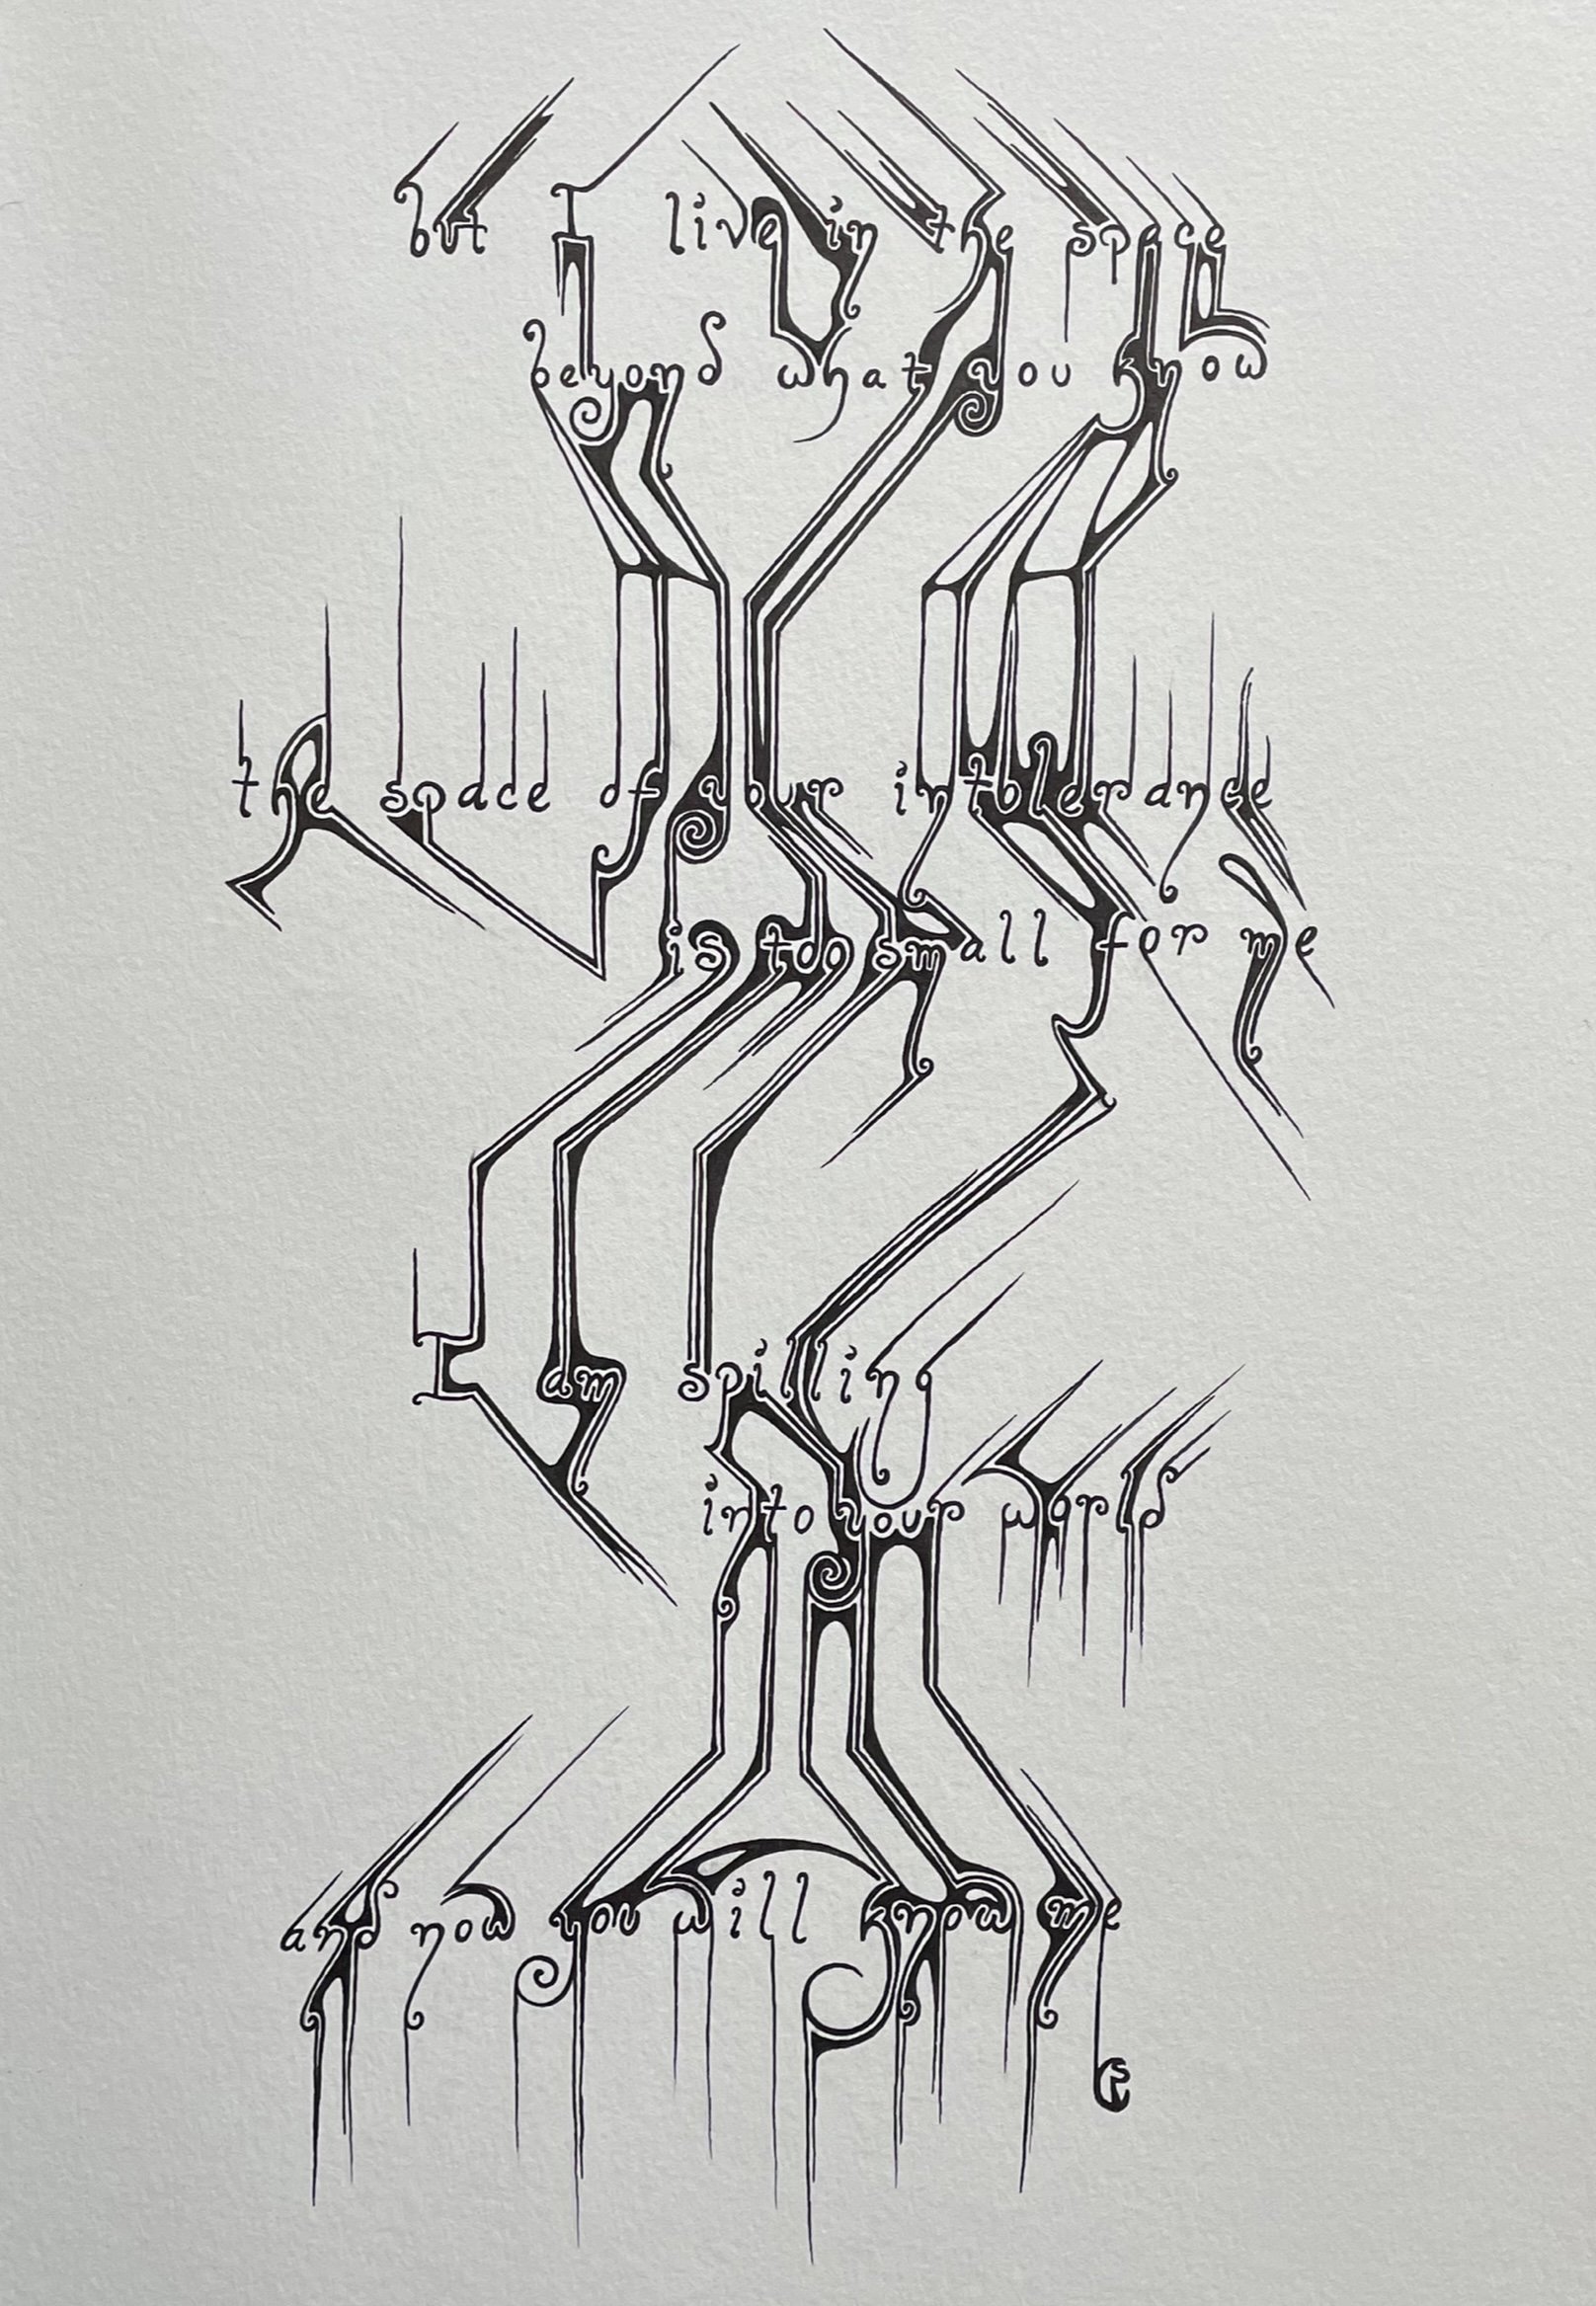 but I live in the space
beyond what you know
the space of your intolerance
is too small for me
I am spilling
into your world
and now you will know me